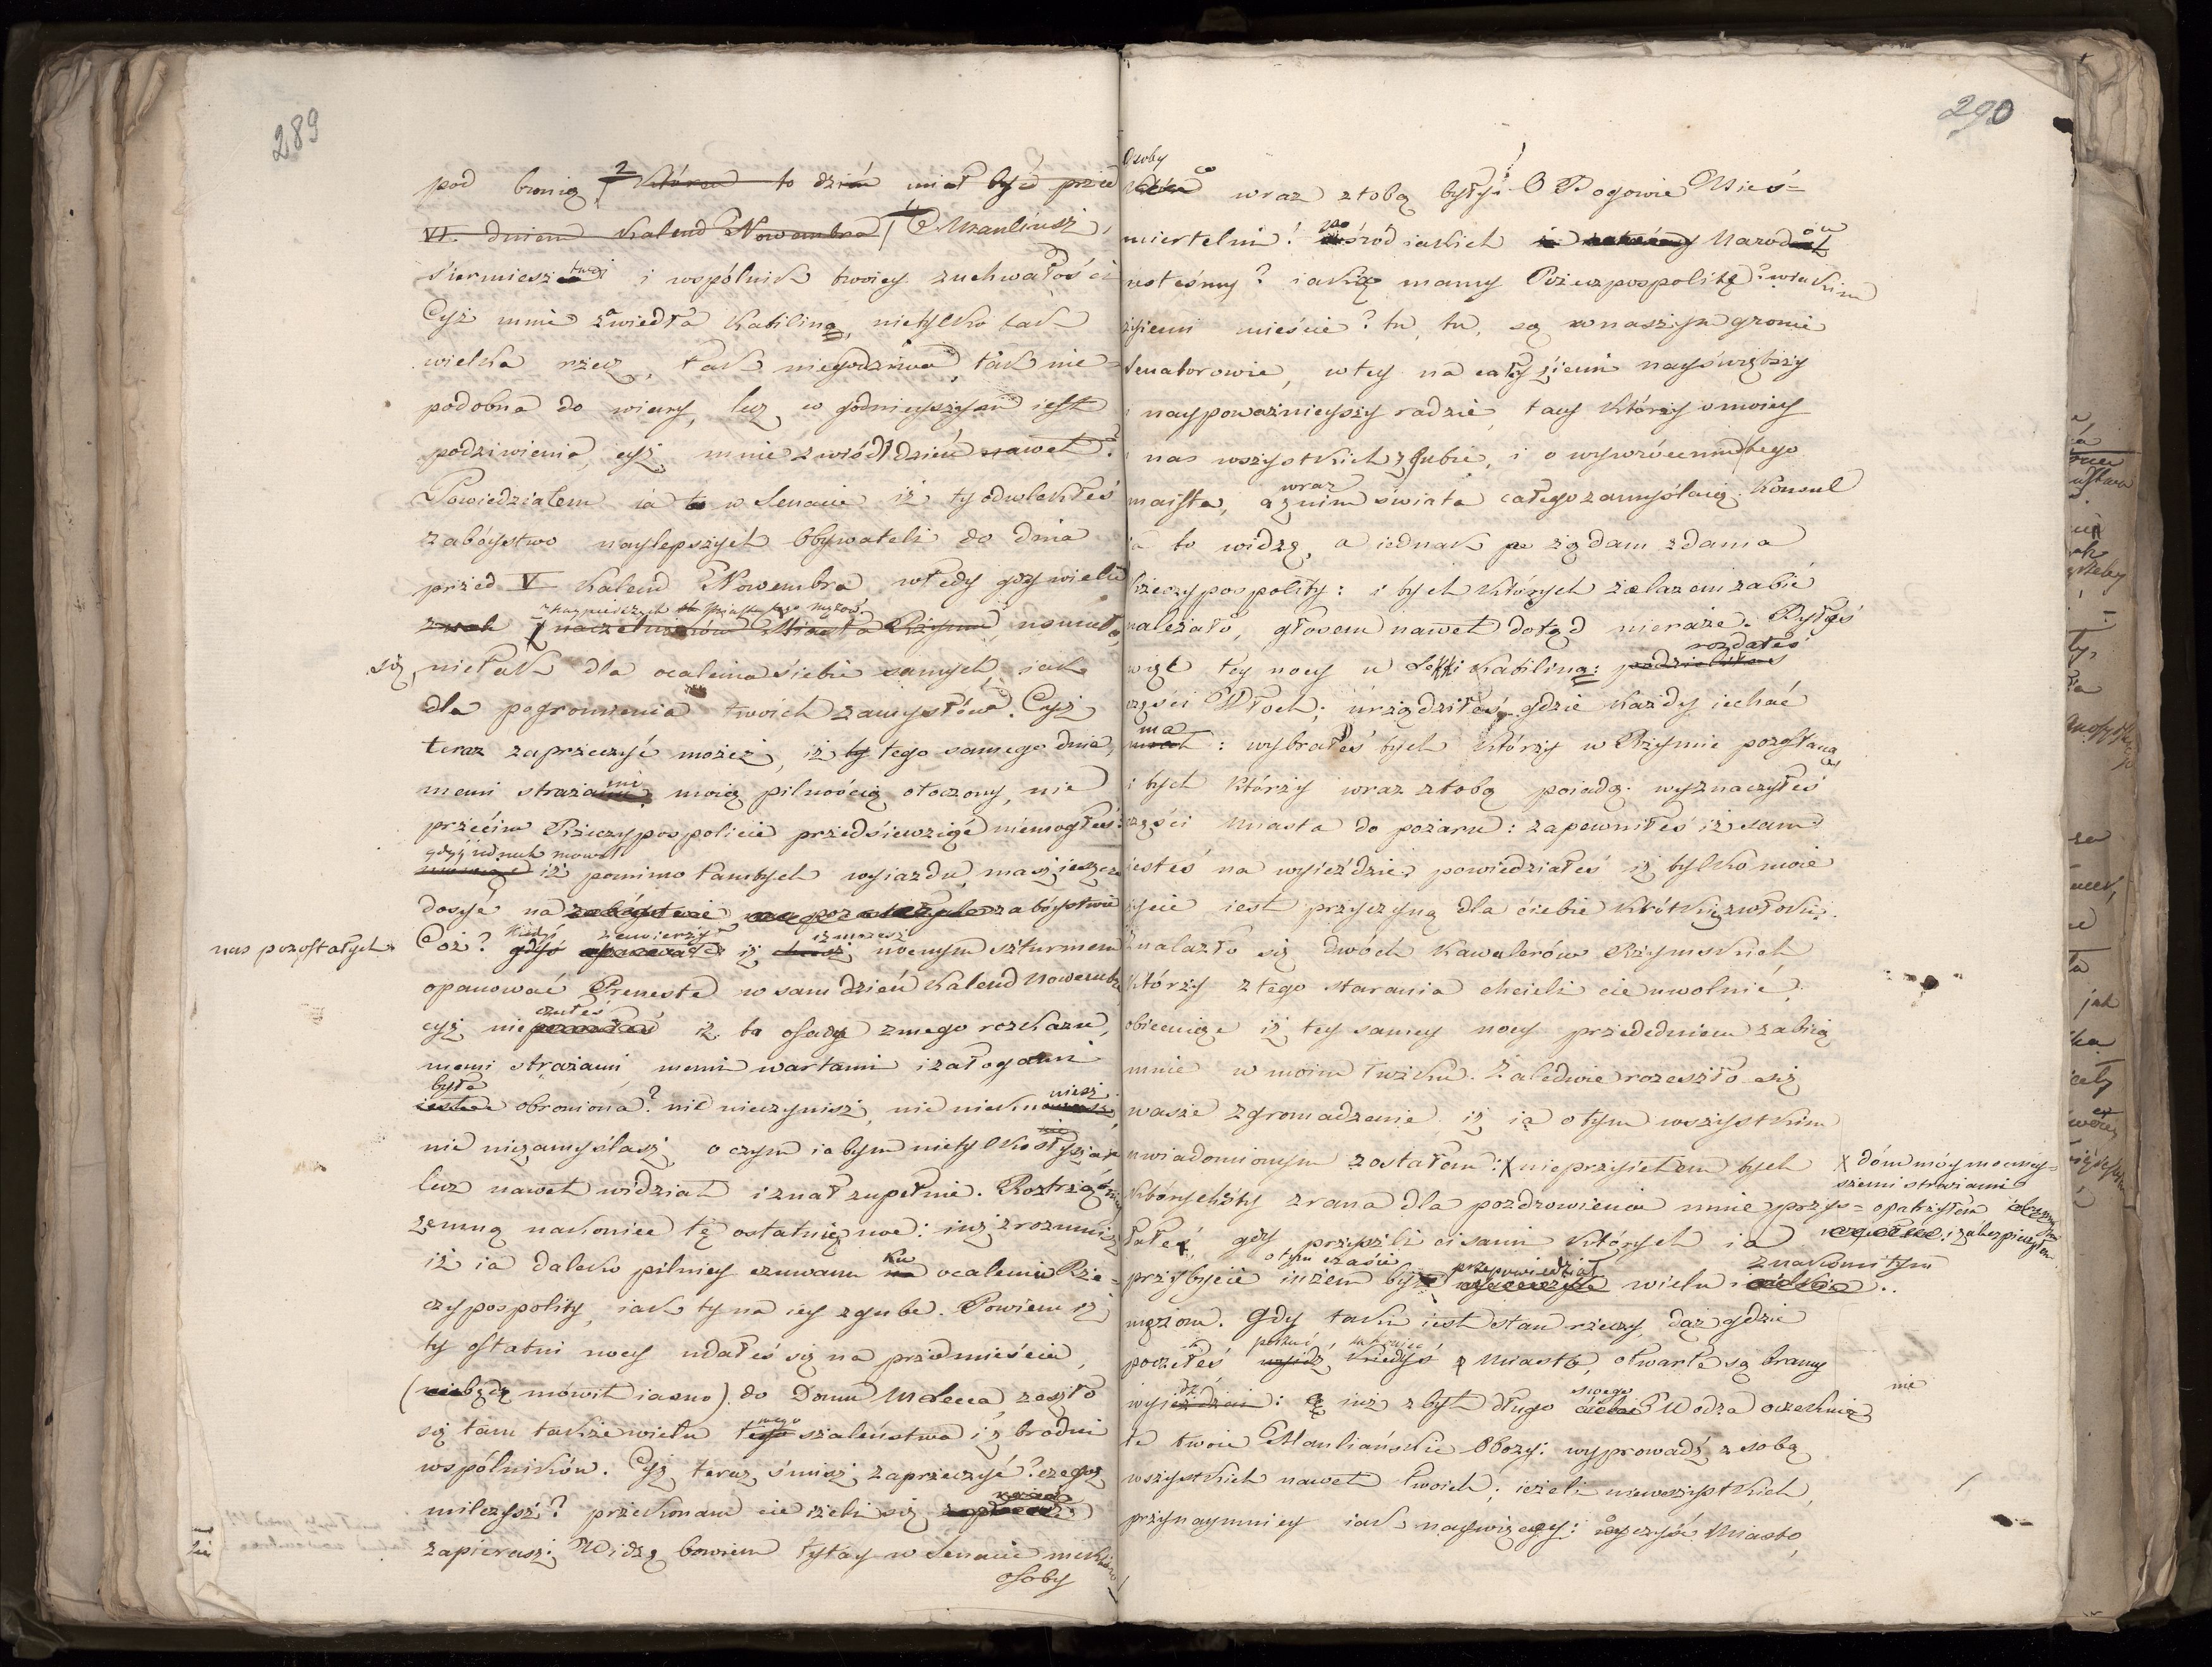 289
pod bronią, 2 któren to dzień miał być przed
VI. dniem Kalend Nowembra C. Manliusz,
siermierz twój i wspólnik twoiey zuchwałości
Cyż mnie zawiedła Katilino, nietylko tak
wielka rzecz, tak niegodziwa, tak nie=
podobna do wiary, lecz co godnieyszym iest
podziwienia, czyż mnie zwiódł dzień nawet?
Powiedziałem ia to w Senacie iż ty odwlekłeś
zabóystwo naylepszych Obywateli do dnia
przed V Kalend Nowembra, wtedy gdy wielu
znaypierwszych Miasta tego mężów
naczelników Miasta Rzymu, usunęło
się, nietak dla ocalenia siebie samych, iak
dla pogromienia twoich zamysłów. Czyż
teraz zaprzeczyć możesz, iż ty tego samego dnia,
memi strażami moią pilnością otoczony, nic
przeciw Rzeczypospolicie przedsiewziąć niemogłeś:
gdyż iednak mówił
iż pomimo tamtych wyiazdu, masz ieszcze
dosyć na zabóystwie
nas pozostałych. Cóż? kiedyś zawierzył iż nocnym szturmem
opanować Preneste w sam dzień Kalend Nowembra
czyż nie czułeś iż ta osada zmego rozkazu,
memi strażami, memi wartami i załogami
była obroniona? nic nieczynisz, nic nieknuiesz,
nic niezamyślasz, o czym iabym nietylko słyszał
lecz nawet widział i znał zupełnie. Roztrząśnij
zemną nakoniec tę ostatnię noc: iuż zrozumiesz
iż ia daleko pilniey czuwam ku ocaleniu Rze=
czypospolity, iak ty na iey zgubę. Powiem iż
ty ostatni nocy udałeś się na przedmieście,
(będę mówił iasno) do Domu M. Lecca, zeszło
się tam takze wielu tego szaleństwa i zbrodni
wspólników. Czyż teraz śmiesz zaprzeczyć? czegoż
milczysz? przekonam cie ieżeli się
zapierasz: Widzę bowiem tytay w Senacie niektóre
osoby
290
Osoby
co wraz ztobą były: O Bogowie Nieś=
miertelni! wśród iakich Narodów
iesteśmy? iaką mamy Rzeczpospolitę? w iakim
żyiemi mieście? tu, tu, są w naszym gronie
Senatorowie, w tey na całey ziemi nayświętszy
i naypoważnieyszy radzie, tacy którzy o moiey
i nas wszystkich zgubie, i o wywróceniu tego
miasta, a z nim wraz świata całego zamyślaią. Konsul
ia to widzę, a iednak żądam zdania
Rzeczypospolity: i tych których żelazem zabić
należało, głosem nawet dotąd nierażę. Byłeś
więc tey nocy u Lekki Katilino: rozdałeś
części Włoch; urządziłeś gdzie każdy iechać
ma: wybrałeś tych którzy w Rzymie pozostaną
i tych którzy wraz ztobą poiadą: wyznaczyłeś
części Miasta do pożaru: zapewniłeś iż sam
iesteś na wyieździe: powiedziałeś iż tylko moie
życie iest przyczyną dla ciebie krótkiey zwłoki.
Znalazło się dwoch Kawalerów Rzymskich
którzy z tego starania chcieli cie uwolnić,
obiecuiąc iż tey samey nocy przededniem zabiią
mnie w moim łóżku. Zaledwie rozeszło się
wasze zgromadzenie, iż ia o tym wszystkim
uwiadomionym zostałem: X nieprzyiełem tych X dóm móy mocniey=
szemi strażami
którychżty zrana dla pozdrowienia mnie przys= opatrzyłem
łałeś, gdy przyszli cisami których ia i zabezpieczyłem
przybycie o tym czasie przepowiedział wielu znakomitym
mężom. Gdy taki iest stan rzeczy, dąż gdzie
począłeś porzuć nakoniec Miasto, otwarte są bramy
wyidź: iuż zbyt długo swego Wodza oczekuią
te twoie Manliańskie Obozy: wyprowadź z sobą
wszystkich nawet twoich; ieżeli niewszystkich,
przynaymniey iak naywięcey: oczyść Miasto,